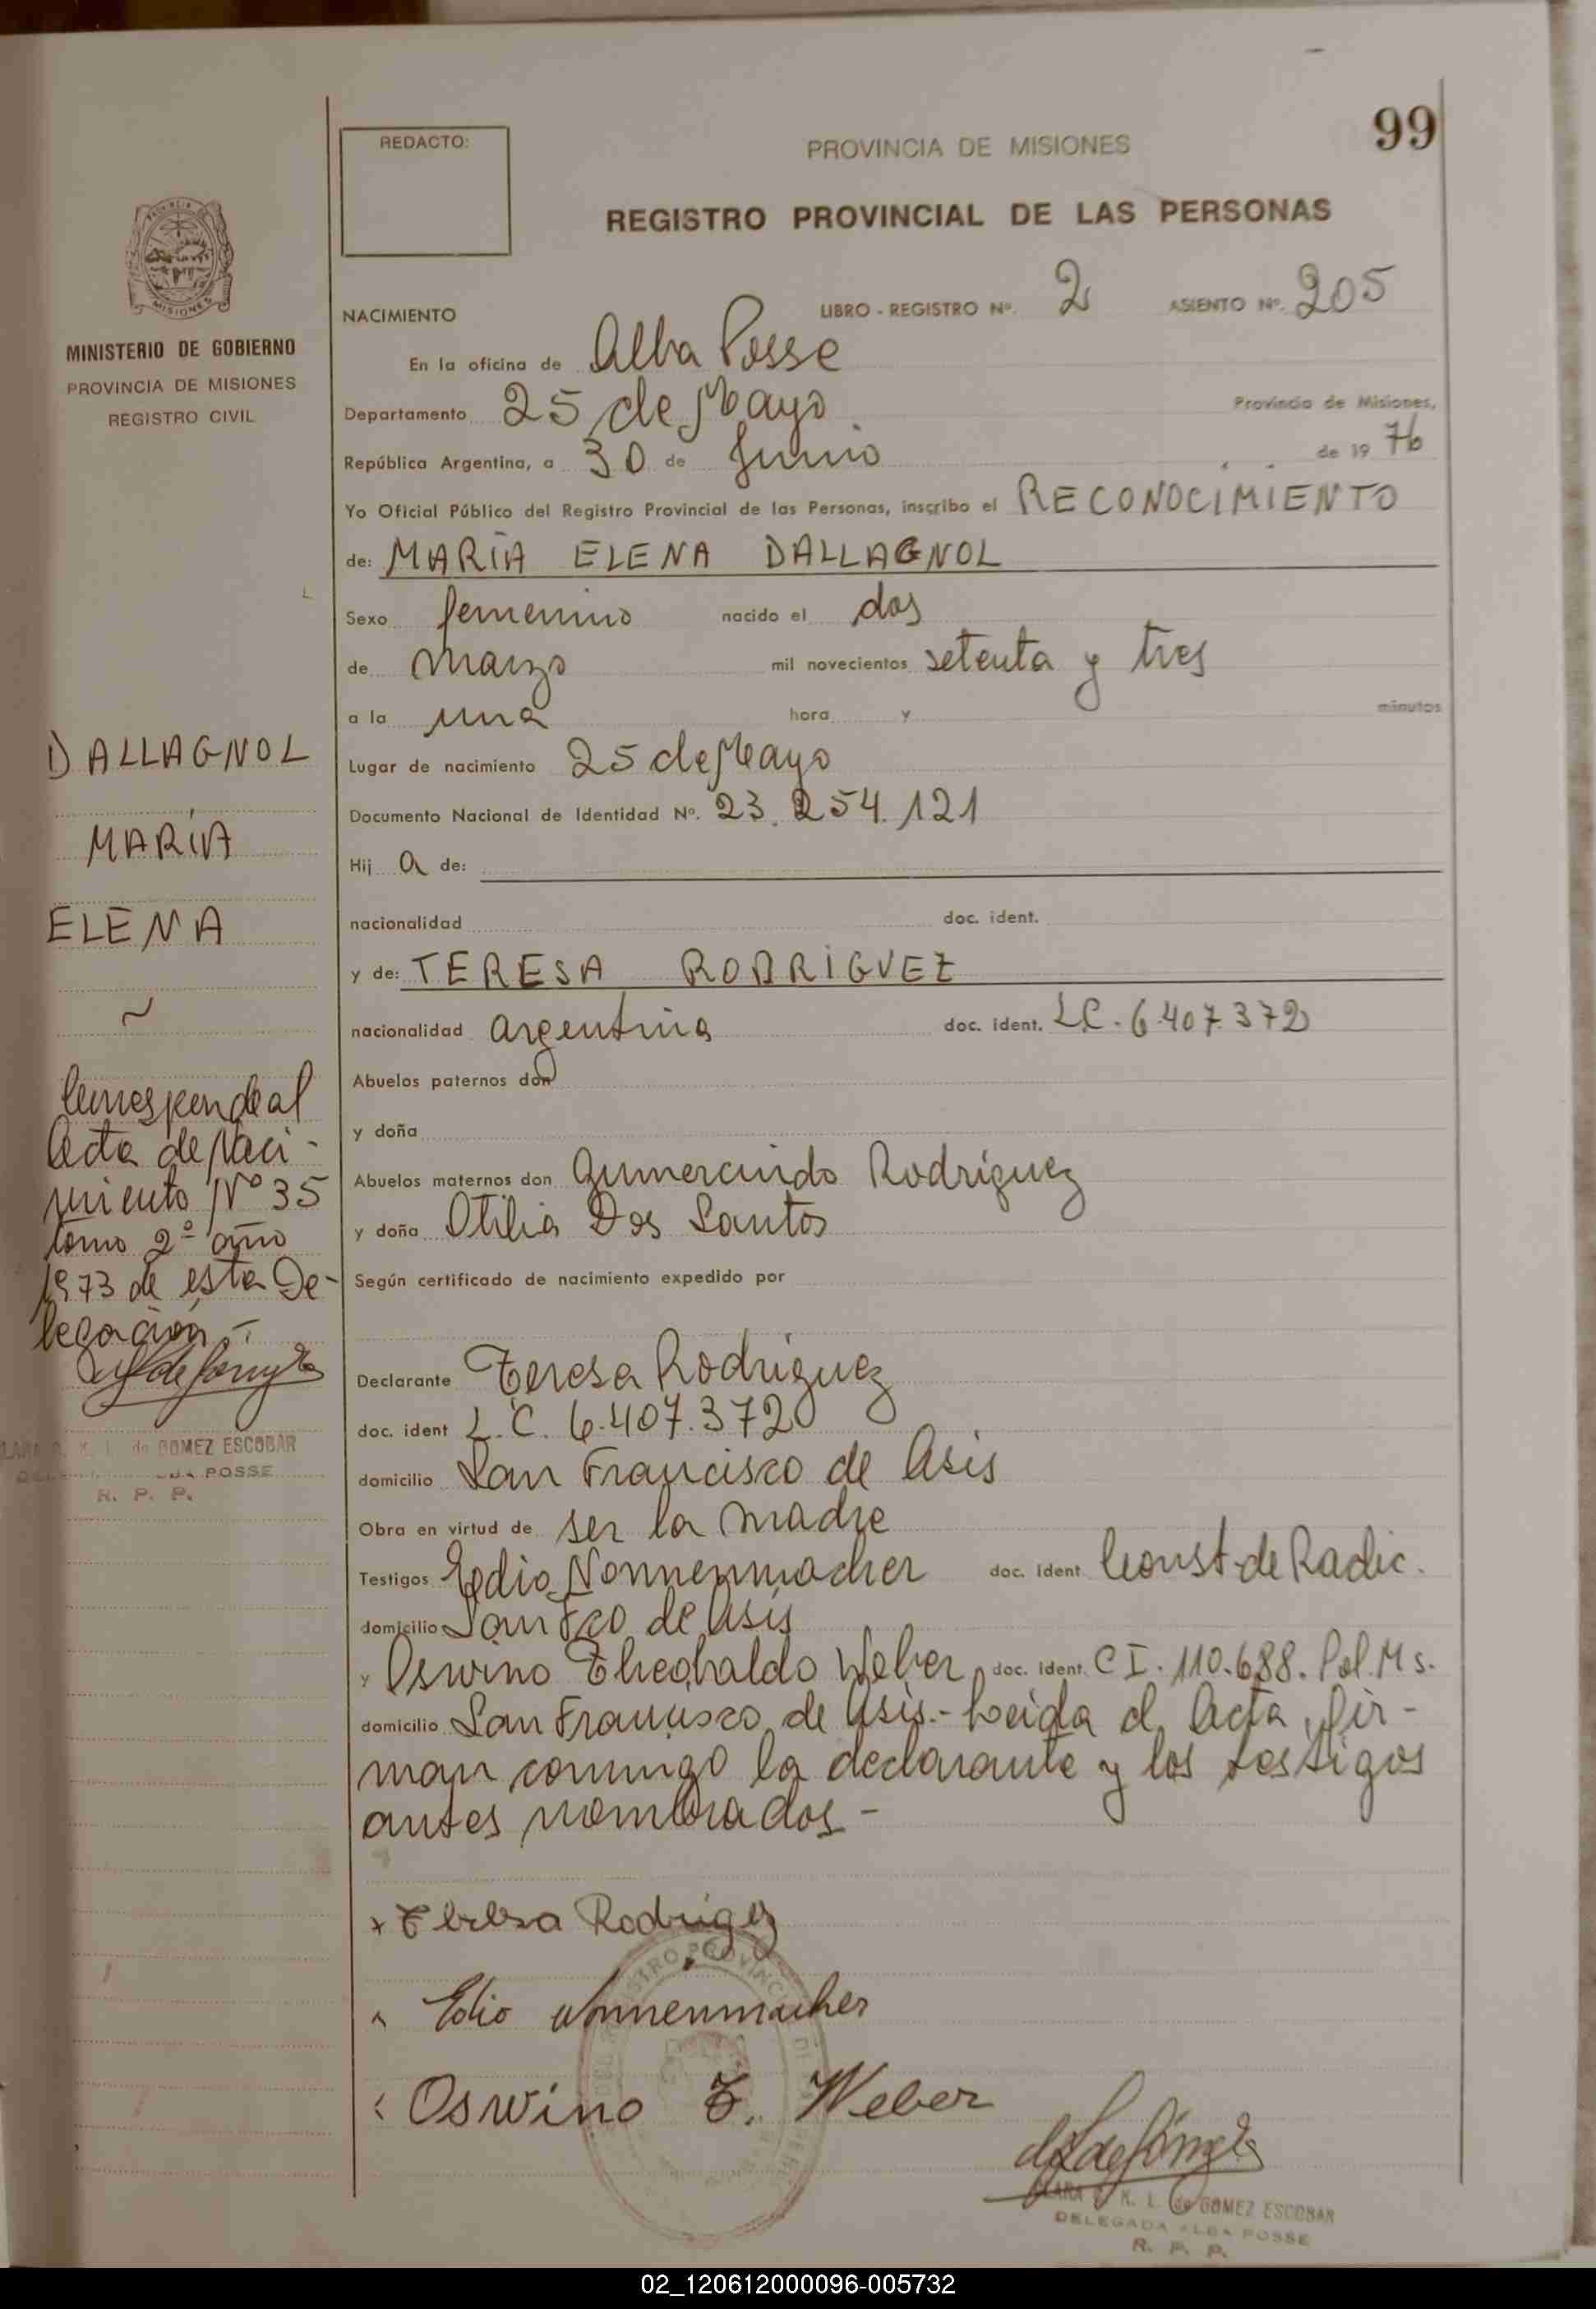 99
REDACTO:
PROVINCIA DE MISIONES
REGISTRO PROVINCIAL DE LAS PERSONAS
MISIONES
MINISTERIO DE GOBIERNO
PROVINCIA DE MISIONES
REGISTRO CIVIL
NACIMIENTO LIBRO - REGISTRO Nº. 2 ASIENTO Nº. 205
En la oficina de Alba Posse
Departamento 25 de Mayo Provincia de Misiones,
República Argentina, a 30 de Junio de 19 76
Yo Oficial Público del Registro Provincial de las Personas, inscribo el RECONOCIMIENTO
de: MARÍA ELENA DALLAGNOL
Sexo femenino nacido el dos
de marzo mil novecientos setenta y tres
a la una hora y minutos
Lugar de nacimiento 25 de Mayo
Documento Nacional de Identidad Nº. 23.254.121
Hij a de:
nacionalidad doc. ident.
y de: TERESA RODRIGUEZ
nacionalidad argentina doc. ident. LC. 6.407.372
Abuelos paternos don
y doña
Abuelos maternos don Gumercindo Rodríguez
y doña Otilia Dos Santos
Según certificado de nacimiento expedido por
Declarante Teresa Rodríguez
doc. ident L.C. 6.407.372
domicilio San Francisco de Asis
Obra en virtud de ser la madre
Testigos Edio Nonnenmacher doc. ident Const. de Radic.
domicilio San Fco de Asís
y Oswino Theobaldo Weber doc. ident. C I. 110.688. Pol. Ms.
domicilio San Francisco de Asis.- Leida el Acta, fir-
man conmigo la declarante y los testigos
antes nombrados -
DALLAGNOL
MARÍA
ELENA
Corresponde al
Acta de Naci-
miento Nº 35
tomo 2º año
1973 de esta De-
legación -
de GOMEZ ESCOBAR
POSSE
R. P. P.
Teresa Rodrigez
Edio Nonnenmacher
Oswino T. Weber
K. I. de GOMEZ ESCOBAR
DELEGADA ALBA POSSE
R. P. P.
02_120612000096-005732